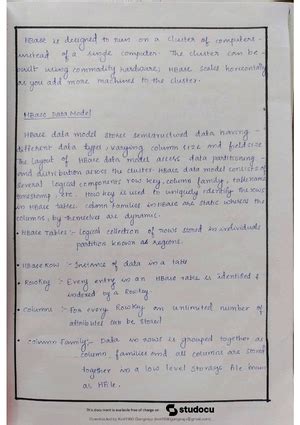 HBase is designed to run on a cluster of computers
instead of a single computer. The cluster can be
built using commodity hardware; HBase scales horizontally
as you add more machines to the cluster.
HBase Data Model
HBase data model stores semistructured data having
different data types, varying column size and field size
The layout of HBase data model access data partitioning
and distribution across the cluster HBase data model consists of
several logical components row key, column family, table name
timestamp, etc. Row key is used to uniquely identify the rows
in HBase tables. Column families in HBase are static whereas the
columns, by themselves are dynamic.
HBase Tables :- Logical collection of rows stored in individuals
partition known as regions.
HBase Row :- Instance of data in a table
RowKey :- Every entry in an HBase table is identified &
indexed by a RowKey
Columns :- For every RowKey an unlimited number of
attributes can be stored
Column Family :- Data in rows is grouped together as
column families and all columns are stored
together in a low level storage file known
as HFile.
This document is available free of charge on studocu